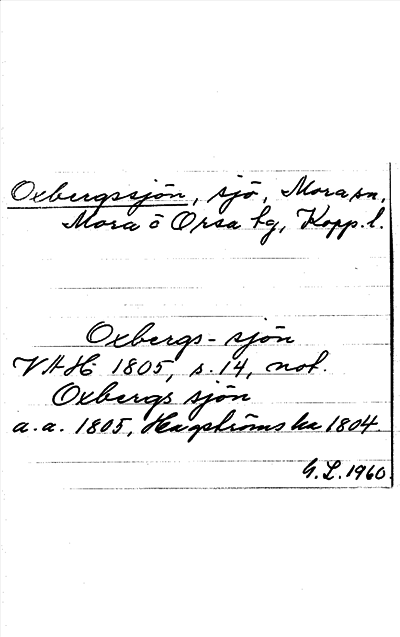 Oxbergssjön, sjö, Mora sn,
Mora o Orsa tg, Kopp. l.
Oxbergs-sjön
VAH 1805, s. 14, not.
Oxbergs sjön
a. a. 1805, Hagströms ka 1804.
G. L. 1960.